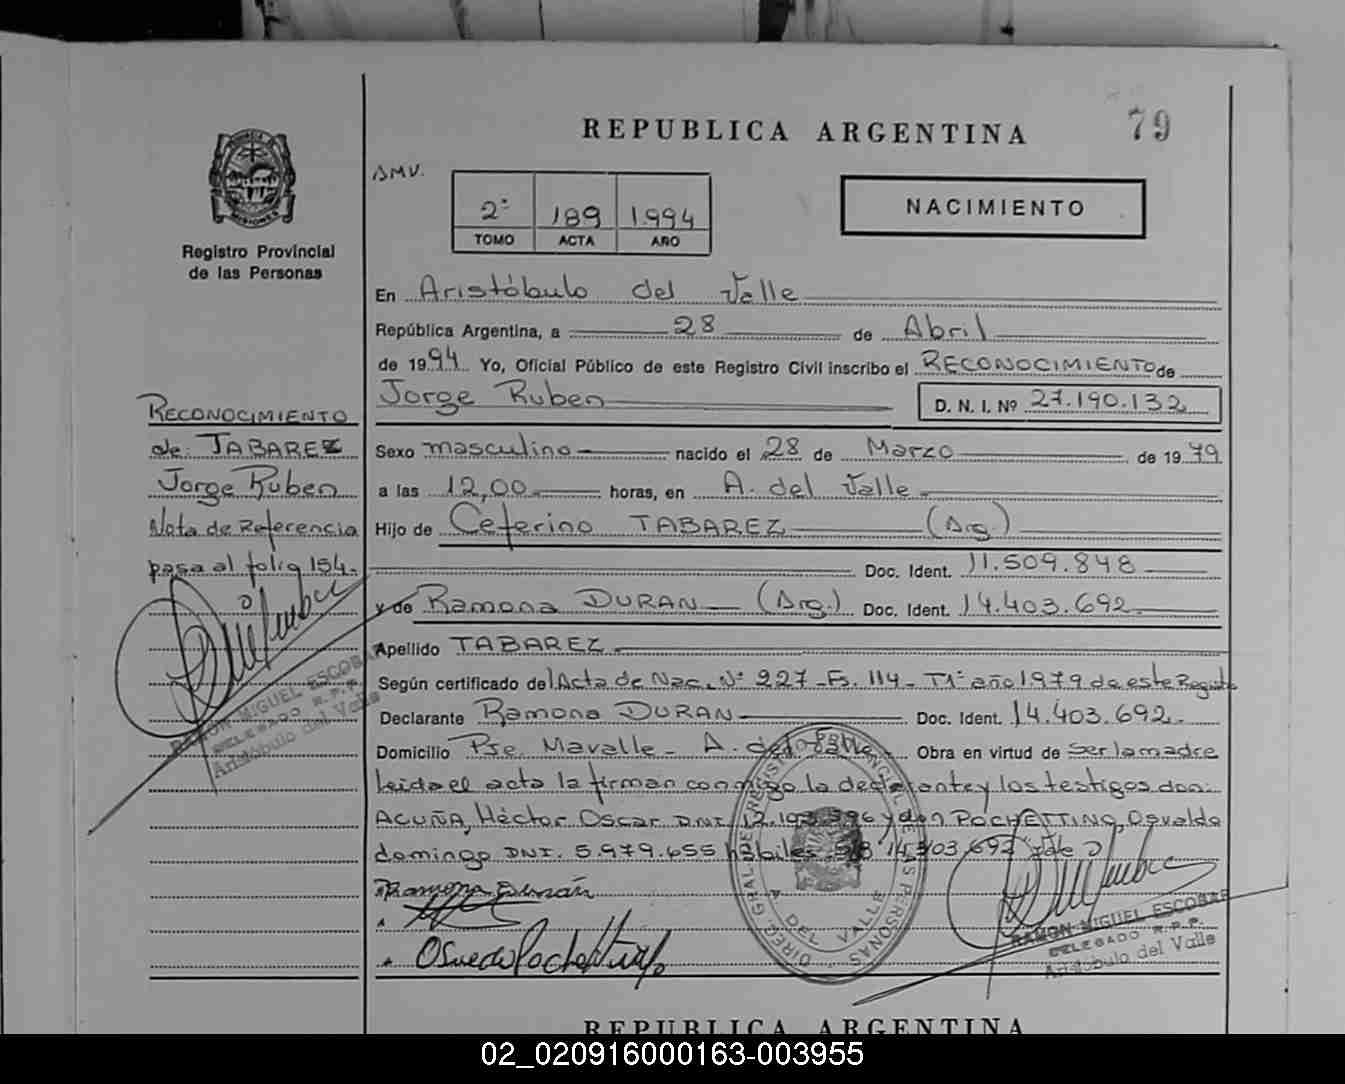 REPUBLICA ARGENTINA
79
AMV.
2º 189 1.994
TOMO ACTA AÑO
NACIMIENTO
MISIONES
Registro Provincial
de las Personas
En Aristóbulo del Valle
República Argentina, a 28 de Abril
de 1994. Yo, Oficial Público de este Registro Civil inscribo el RECONOCIMIENTO de
Jorge Ruben
D. N. I. Nº 27.190.132
Sexo masculino nacido el 28 de Marzo de 1979
a las 12,00 horas, en A. del Valle
Hijo de Ceferino TABAREZ (Arg.)
Doc. Ident. 11.509.848
y de Ramona DURAN (Arg.) Doc. Ident. 14.403.692.
Apellido TABAREZ
Según certificado del Acta de Nac. Nº 227 - Fs. 114 - Tº 1º año 1979 de este Registro
Declarante Ramona DURAN Doc. Ident. 14.403.692.
Domicilio Pje. Mavalle - A. del Valle. Obra en virtud de ser la madre
Leida el acta la firman conmigo la declarante y los testigos don:
ACUÑA, Héctor Oscar DNI. 12.193.396 y don POCHETTINO, Osvaldo
domingo DNI. 5.979.655 hábiles. S/B 14.403.692 Vale
Ramona Durán
RECONOCIMIENTO
de: TABAREZ
Jorge Ruben
Nota de Referencia
pasa al folio 154.
RAMON MIGUEL ESCOBAR
DELEGADO R.P.P.
Aristóbulo del Valle
DIREC. GRAL. DEL REGISTRO PROVINCIAL DE LAS PERSONAS
A. DEL VALLE
RAMON MIGUEL ESCOBAR
DELEGADO R.P.P.
Aristóbulo del Valle
REPUBLICA ARGENTINA
02_020916000163-003955